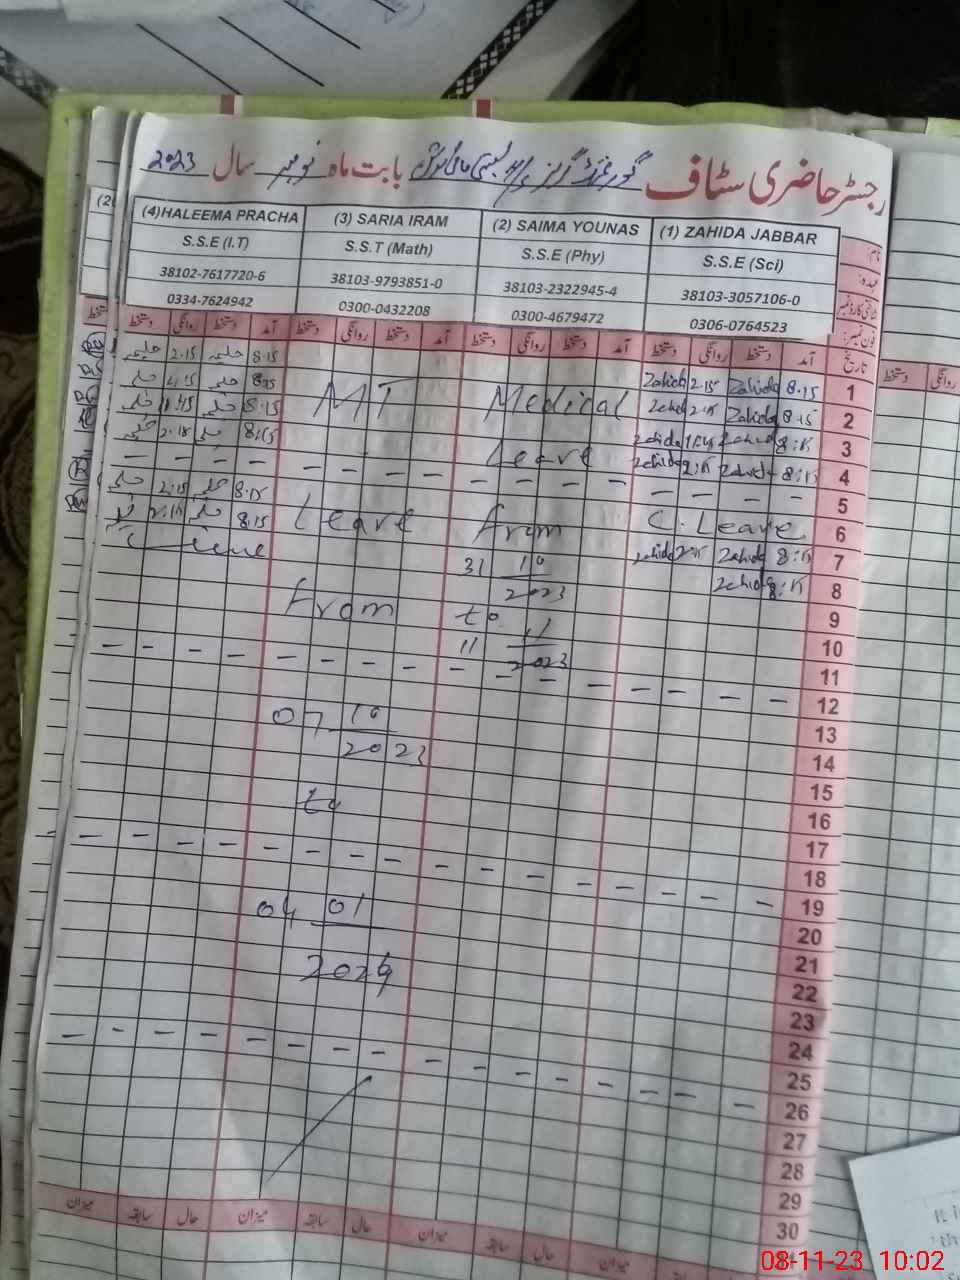 رجسٹر حاضری سٹاف گورنمنٹ گرلز بابت ماہ نومبر سال 2023
(4)HALEEMA PRACHA (3) SARIA IRAM (2) SAIMA YOUNAS (1) ZAHIDA JABBAR نام:
S.S.E (I.T) S.S.T (Math) S.S.E (Phy) S.S.E (Sci) عہدہ:
38102-7617720-6 38103-9793851-0 38103-2322945-4 38103-3057106-0 شناختی کارڈ نمبر
0334-7624942 0300-0432208 0300-4679472 0306-0764523 فون نمبر:
تاریخ آمد دستخط روانگی دستخط آمد دستخط روانگی دستخط آمد دستخط روانگی دستخط آمد دستخط روانگی دستخط
1 8.15 Zahida 2.15 Zahida 8.15 حلیمہ 2.15 حلیمہ
2 8.15 Zahida 2.15 Zahida Medical MT 8.15 حلیمہ 2.15 حلیمہ
3 8:15 Zahida Zahida 8:15 حلیمہ 11:45 حلیمہ
4 8:15 Zahida 2:15 Zahida Leave 8:15 حلیمہ 2.15 حلیمہ
5 – – – –
6 C. Leave From Leave 8.15 حلیمہ 2.15 حلیمہ
7 8:15 Zahida 2:15 Zahida 31 10 2023 8.15 حلیمہ 2.15
8 8:15 Zahida From C Leave
9 to
10 11 11 2023
11
12 – – – –
13 07 10
14 2023
15
16 to
17
18
19 – – – –
20 04 01
21
22 2024
23
24
25
26 – – – –
27
28
29
30
میزان سابقہ حال میزان سابقہ حال میزان سابقہ حال میزان
دستخط روانگی
08-11-23 10:02